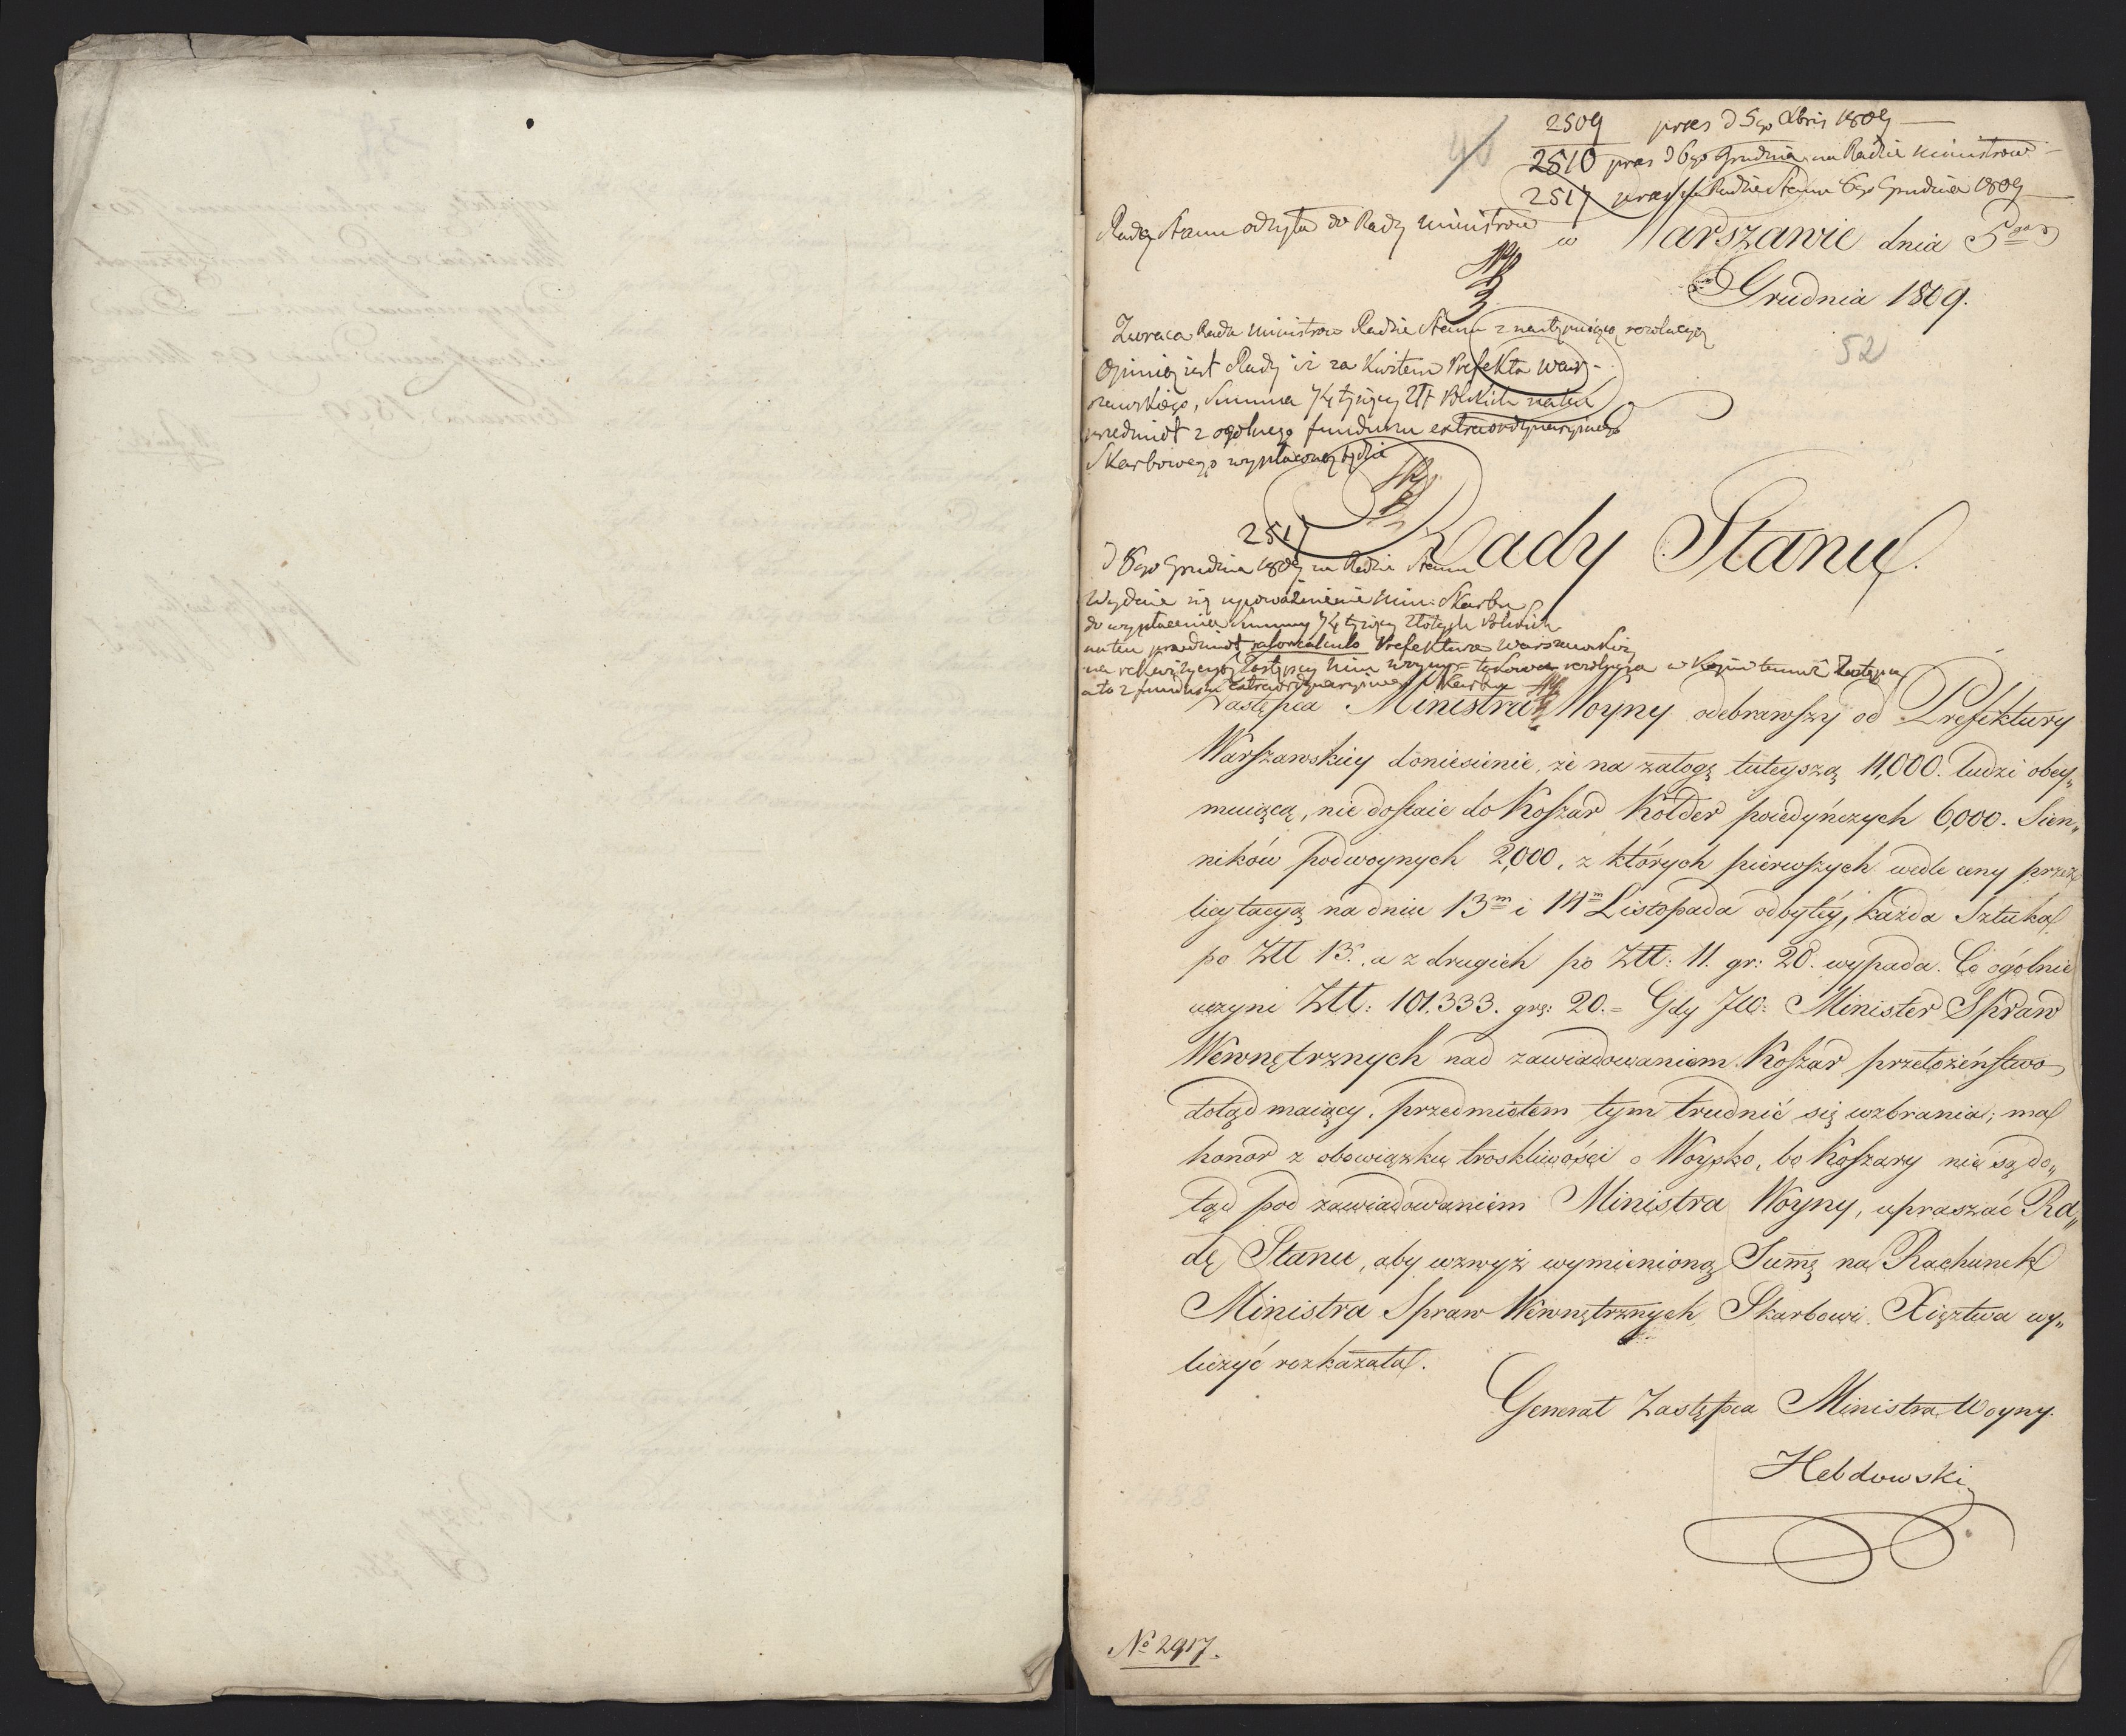 40
2509 praes d 5go Xbris 1809
2510 praes d 6go Grudnia na Radzie Ministrow
2517 praes na Radzie Stanu 6go Grudnia 1809
Rada Stanu odsyła do Rady Ministrow
w Warszawie dnia 5go
Grudnia 1809.
52
Zwraca Rada Ministrow Radzie Stanu z następuiącą rezolucyą
Opinią iest Rady iż za Kwitem Prefekta War-
szawskiego, Summa 74 tysięcy Złt Polskich na ten
przedmiot z ogolnego funduszu extraordynaryinego
Skarbowego wypłacona będzie
Rady Stanu
2517
d 6go Grudnia 1809 na Radzie Stanu
Wydaie się upoważnienie Min: Skarbu
do wypłacenia Summy 74 tysięcy Złotych Polskich
na ten przedmiot salvo calculo Prefekturze Warszawskiey
na rekwizycyą Zastępcy Min Woyny takowa rezolucya w Kopii temuż Zastępcy
a to z funduszu Extraordynaryinego Skarbu
Zastępca Ministra Woyny odebrawszy od Prefektury
Warszawskiey doniesienie, że na załogę tuteyszą 11,000. ludzi obey„
muiącą, nie dostaie do Koszar Kołder poiedyńczych 6,000. Sien„
ników podwoynych 2,000, z których pierwszych wedle ceny przez
licytacyą na dniu 13m i 14m Listopada odbytéy, każda Sztuka
po Złł 13. a z drugich po Złł: 11. gr: 20. wypada. Co ogólnie
uczyni Złł: 101.333. grs: 20.= Gdy JW: Minister Spraw
Wewnętrznych nad zawiadowaniem Koszar przełożeństwo
dotąd maiący, przedmiotem tym trudnić się wzbrania; ma
honor z obowiązku troskliwości o Woysko, bo Koszary nie są do„
tąd pod zawiadowaniem Ministra Woyny, upraszać Ra„
dę Stanu, aby wzwyż wymienioną Sumę na Rachunek
Ministra Spraw Wewnętrznych Skarbowi Xięztwa wy„
liczyć rozkazała.
Generał Zastępca Ministra Woyny.
Hebdowski
No 2917.